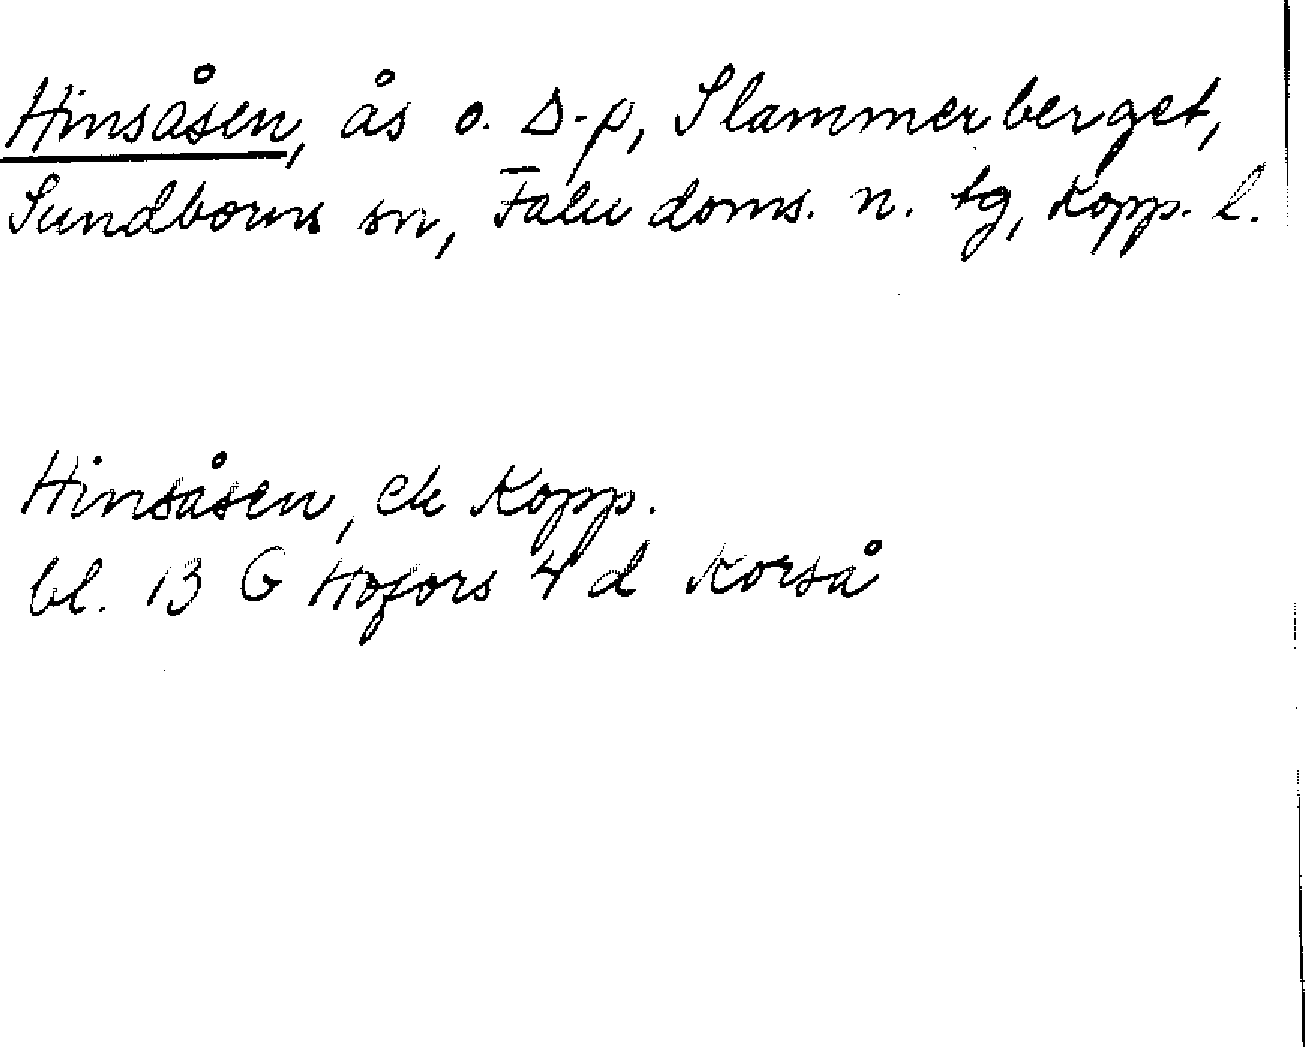 Hinsåsen, ås o. Δ-p, Slammerberget,
Sundborns sn, Falu doms. n. tg, Kopp. l.
Hinsåsen, ek Kopp.
bl. 13 G Hofors 4 d Korså